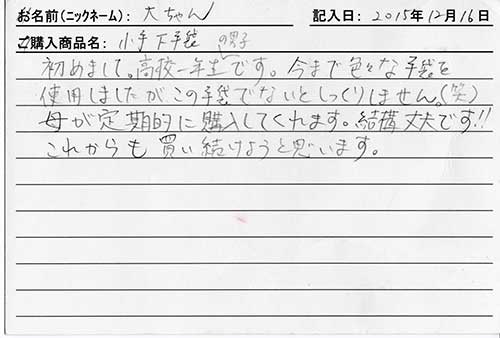 お名前(ニックネーム): 大ちゃん 記入日: 2015年12月16日
ご購入商品名: 小手下手袋
の男子
初めまして。高校一年生です。今まで色々な手袋を
使用しましたが、この手袋でないとしっくりしません。(笑)
母が定期的に購入してくれます。結構丈夫です!!
これからも買い続けようと思います。